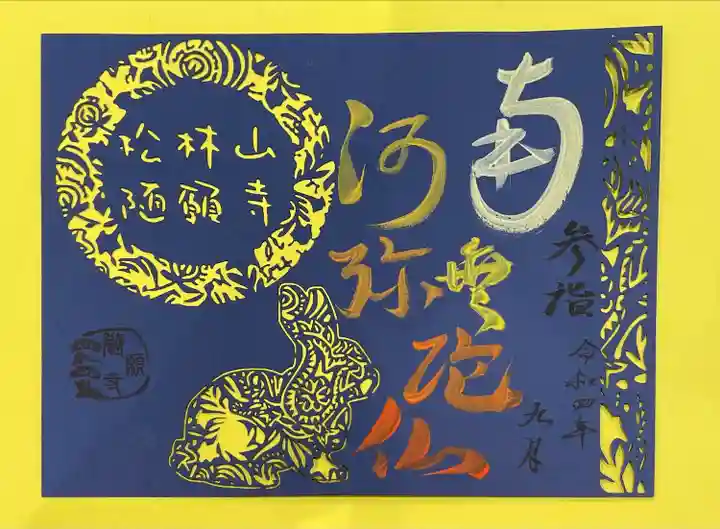 参詣
令和四年
九月
南無
阿弥陀仏
松林山
随願寺